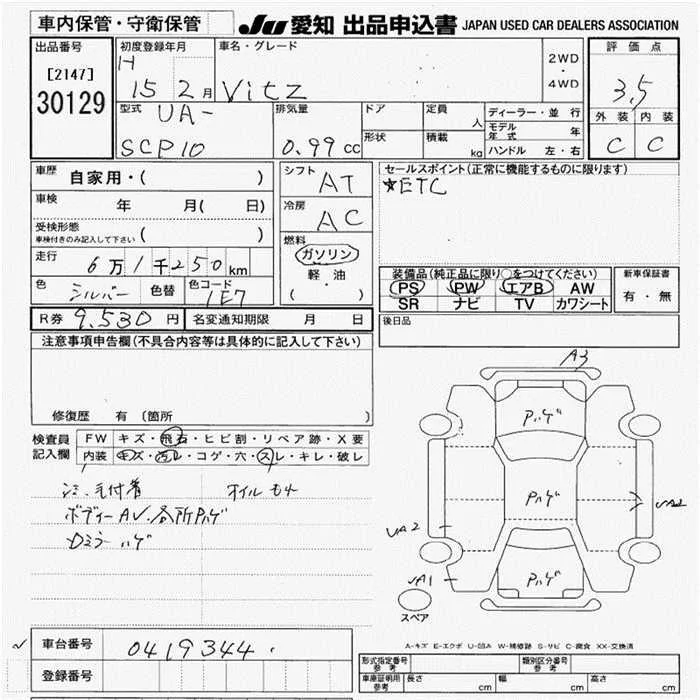 車内保管・守衛保管
JU 愛知 出品申込書 JAPAN USED CAR DEALERS ASSOCIATION
出品番号
[2147]
30129
初度登録年月
H
15 2月
車名・グレード
Vitz
2WD
・
4WD
評価点
3.5
外装 内装
C C
型式
UA-
SCP10
排気量
0.99 cc
ドア
形状
定員
人
積載
kg
ディーラー・並行
モデル年式 年
ハンドル 左・右
車歴
自家用・( )
車検
年 月( 日)
受検形態
車検付きのみ記入して下さい ( )
走行
6万1千250km
色
シルバー
色替
色コード
1E7
シフト
AT
冷房
AC
燃料
ガソリン
軽油
( )
セールスポイント(正常に機能するものに限ります)
★ETC
装備品(純正品に限り○をつけてください)
PS PW エアB AW
SR ナビ TV カワシート
新車保証書
有・無
R券 9,530円
名変通知期限 月 日
後日品
注意事項申告欄(不具合内容等は具体的に記入して下さい)
修復歴 有 (箇所 )
検査員
記入欄
FW キズ・飛石・ヒビ割・リペア跡・X要
内装 キズ・汚レ・コゲ・穴・スレ・キレ・破レ
シミ、毛付着
オイルモレ
ボディーAU、各所Pハゲ
Dミラーハゲ
A3
Pハゲ
Pハゲ
Pハゲ
UA2
UA2
UA1
スペア
A-キズ E-エクボ U-凹み W-補修跡 S-サビ C-腐食 XX-交換済
車台番号
0419344
登録番号
形式指定番号
参考
類別区分番号
参考
車庫証明用
参考
長さ cm
幅 cm
高さ cm